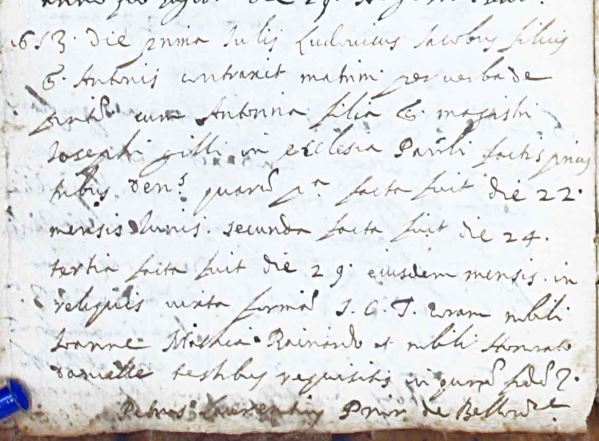 die 29.
1613. die prima Iulij Ludovicus Iacobus filius
q. Antonij contraxit matrim. per verba de
pñti cum Antonina filia q. magistri
Iosephi gilli in ecclesia Paroli factis prius
tribus denˢ. quarũ pᵃ facta fuit die 22.
mensis Iunij. secunda facta fuit die 24.
tertia facta fuit die 29. eiusdem mensis. in
reliquis iuxta formã S. C. T. coram nobili
Ioanne Rainardo et nobili Honorato
Danielle testibus requisitis in quorũ fidẽ
Petrus Laurentius Prior de